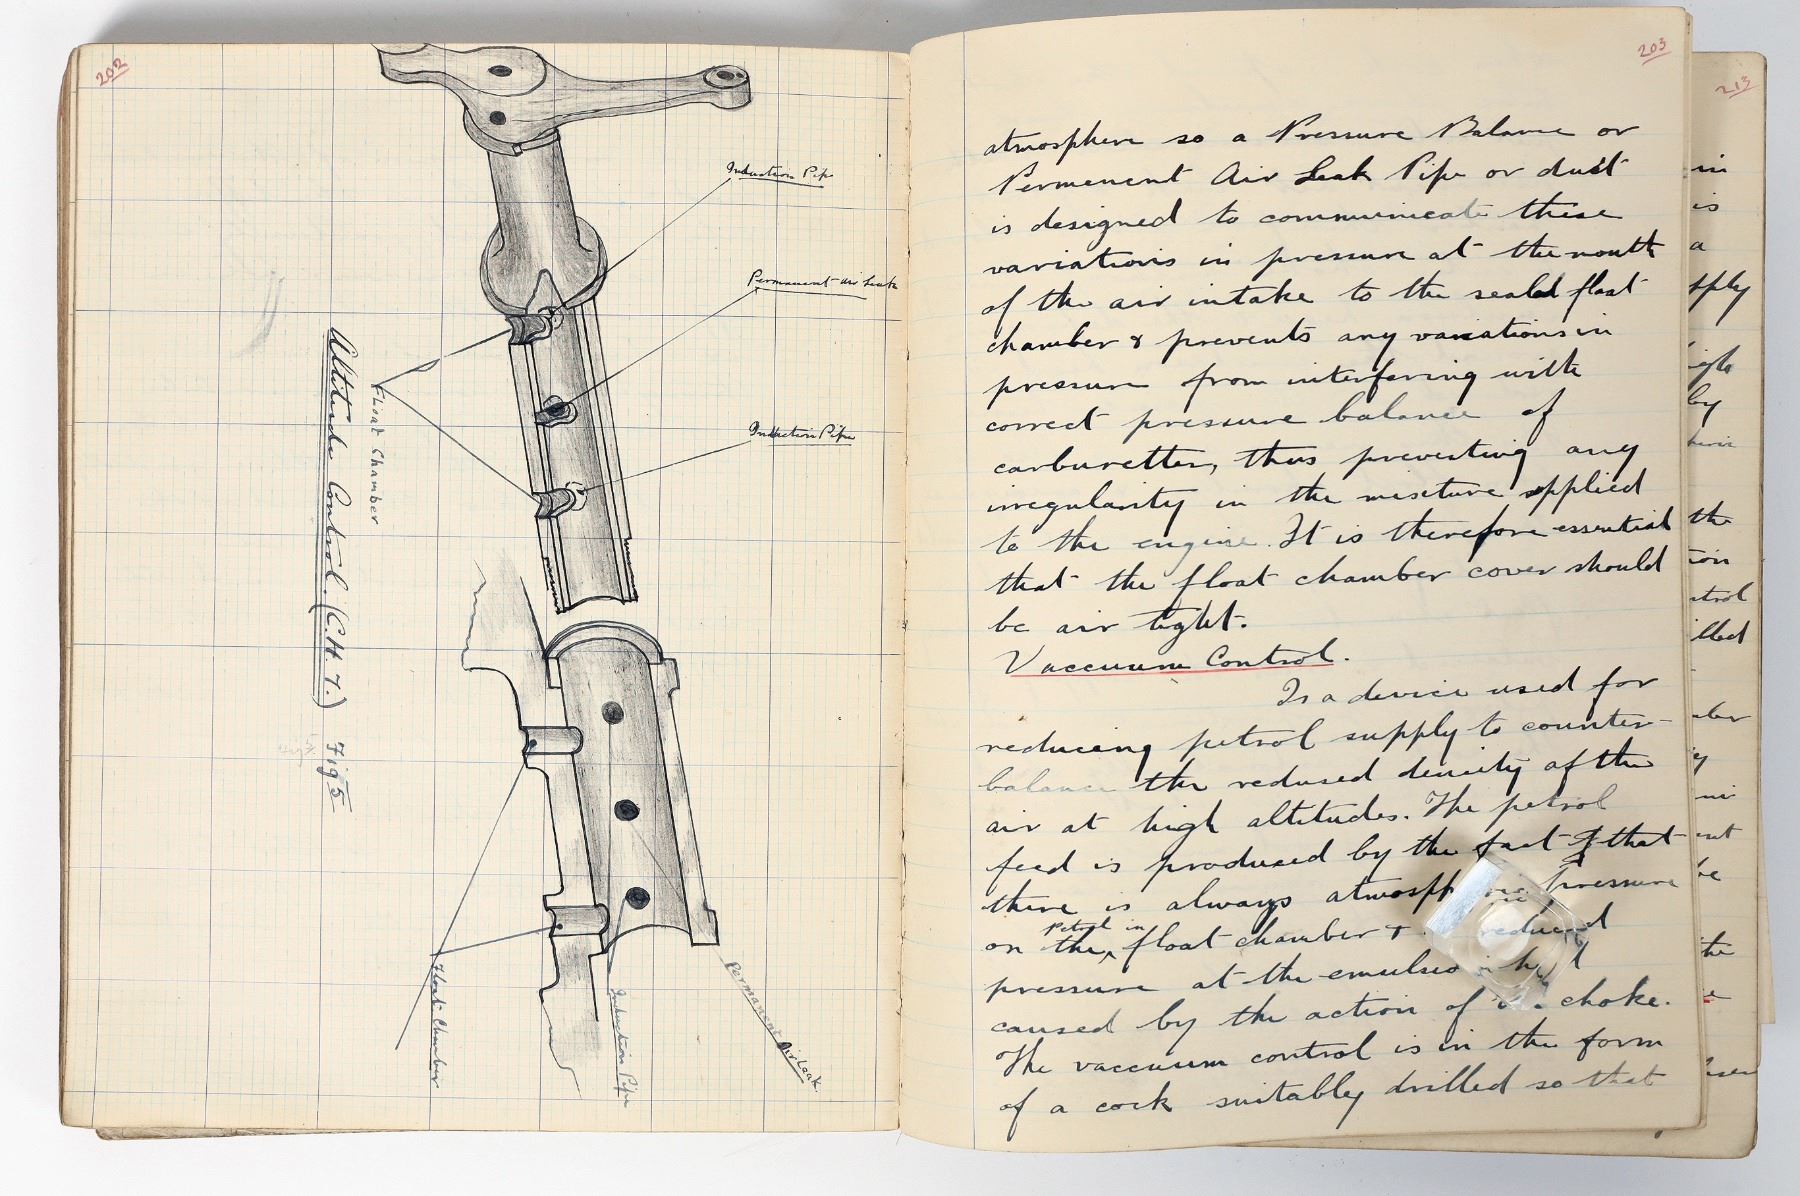 202
Induction Pipe
Permanent Air Leak
Induction Pipe
Float Chamber
Altitude Control. (C.H.7.) Fig 5
Float Chamber
Induction Pipe
Permanent Air Leak
203
atmosphere so a Pressure Balance or
Permenent Air Leak Pipe or duct
is designed to communicate these
variations in pressure at the mouth
of the air intake to the sealed float
chamber & prevents any variations in
pressure from interfering with
correct pressure balance of
carburetter, thus preventing any
irregularity in the mixture applied
to the engine. It is therefore essential
that the float chamber cover should
be air tight.
Vaccuum Control.
Is a device used for
reducing petrol supply to counter-
balance the redused density of the
air at high altitudes. The petrol
feed is produced by the fact that
there is always atmospheric pressure
Petrol in
on the float chamber & reduced
pressure at the
caused by the action of the choke.
The vaccuum control is in the form
of a cock suitably drilled so that
213
in
is
a
by
the
the